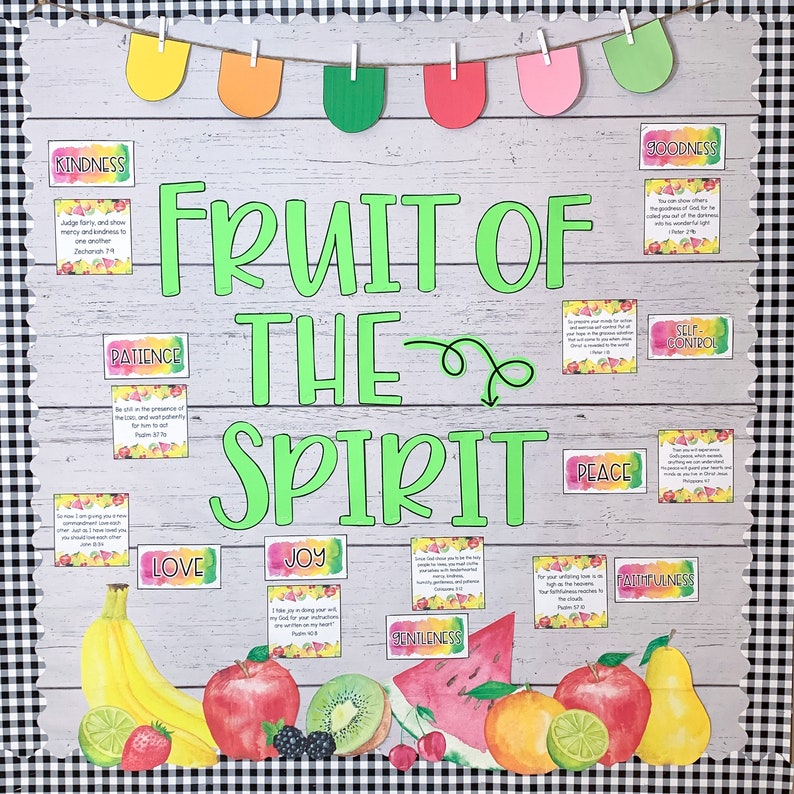 FRUIT OF
THE
SPIRIT
KINDNESS
Judge fairly, and show
mercy and kindness to
one another
Zechariah 7:9
GOODNESS
You can show others
the goodness of God, for he
called you out of the darkness
into his wonderful light
1 Peter 2:9b
PATIENCE
Be still in the presence of
the LORD, and wait patiently
for him to act
Psalm 37:7a
So prepare your minds for action
and exercise self-control. Put all
your hope in the gracious salvation
that will come to you when Jesus
Christ is revealed to the world
1 Peter 1:13
SELF-
CONTROL
PEACE
Then you will experience
God's peace, which exceeds
anything we can understand.
His peace will guard your hearts and
minds as you live in Christ Jesus.
Philippians 4:7
So now I am giving you a new
commandment: Love each
other. Just as I have loved you,
you should love each other
John 13:34
LOVE
JOY
I take joy in doing your will,
my God, for your instructions
are written on my heart"
Psalm 40:8
Since God chose you to be the holy
people he loves, you must clothe
yourselves with tenderhearted
mercy, kindness,
humility, gentleness, and patience
Colossians 3:12
GENTLENESS
For your unfailing love is as
high as the heavens.
Your faithfulness reaches to
the clouds.
Psalm 57:10
FAITHFULNESS